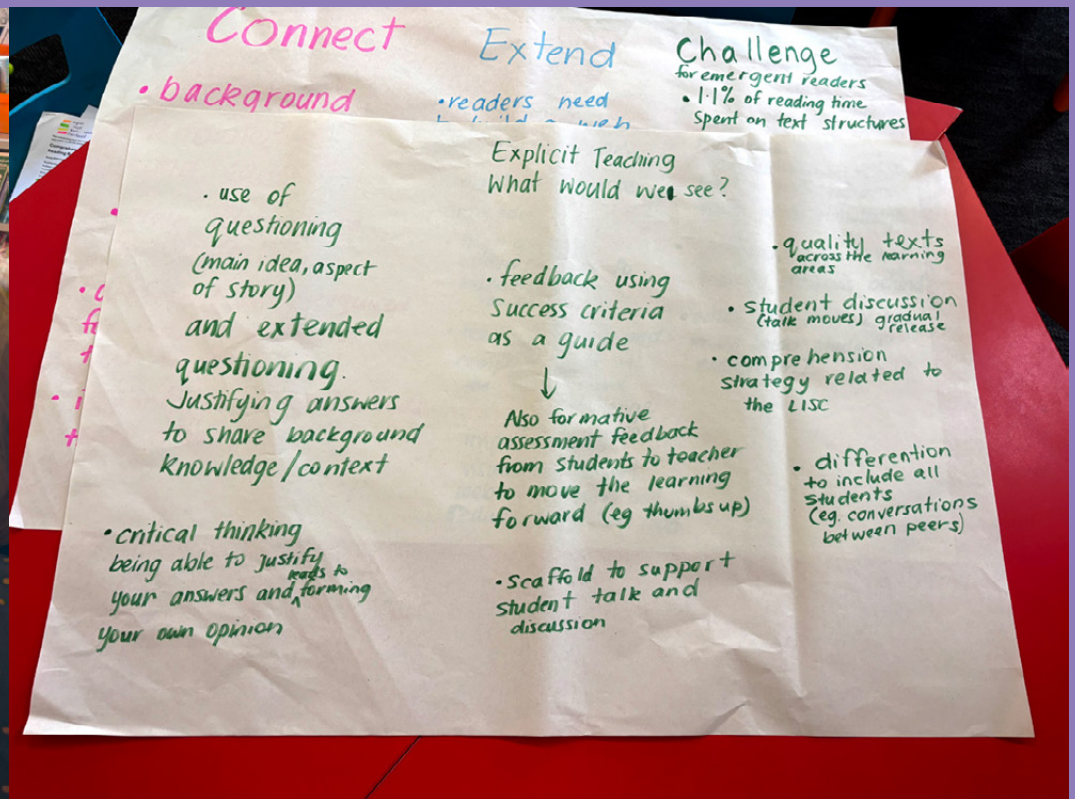 Connect
• background
Extend
• readers need
Challenge
for emergent readers
• 1.1% of reading time
Spent on text structures
Explicit Teaching
What would we see?
• use of
questioning
(main idea, aspect
of story)
and extended
questioning.
Justifying answers
to share background
knowledge/context
• critical thinking
being able to justify
your answers and leads to forming
your own opinion
• feedback using
Success criteria
as a guide
↓
Also formative
assessment feedback
from students to teacher
to move the learning
forward (eg thumbs up)
• Scaffold to support
student talk and
discussion
• quality texts
across the learning
areas
• student discussion
(talk moves) gradual
release
• comprehension
strategy related to
the LISC
• differention
to include all
students
(eg. conversations
between peers)